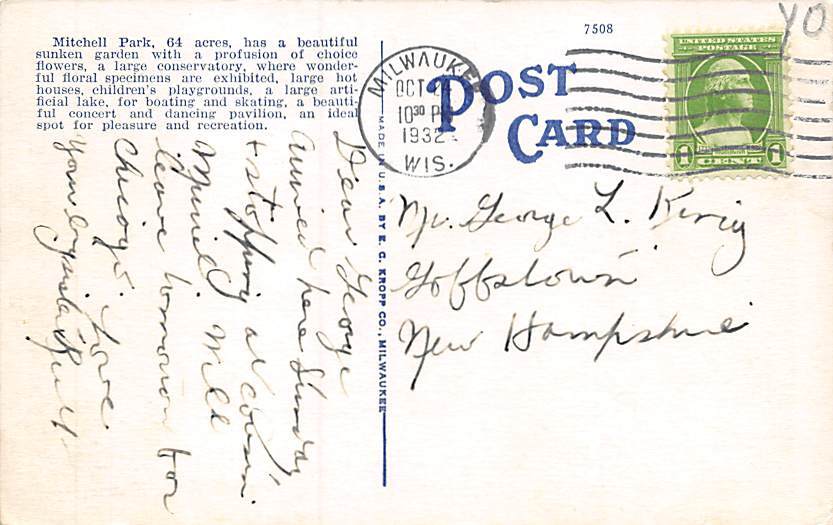 7508
YO
Mitchell Park, 64 acres, has a beautiful
sunken garden with a profusion of choice
flowers, a large conservatory, where wonder-
ful floral specimens are exhibited, large hot
houses, children's playgrounds, a large arti-
ficial lake, for boating and skating, a beauti-
ful concert and dancing pavilion, an ideal
spot for pleasure and recreation.
MILWAUKEE
OCT
10 30 P
1932
WIS.
POST
CARD
UNITED STATES
POSTAGE
1 CENT 1
MADE IN U.S.A. BY E. C. KROPP CO., MILWAUKEE
Dear George
arrived here Sunday
+ stopping at cousin
Muriel. Will
leave tomorrow for
Chicago. Love
Your
Mr. George L.
Goffstown
New Hampshire